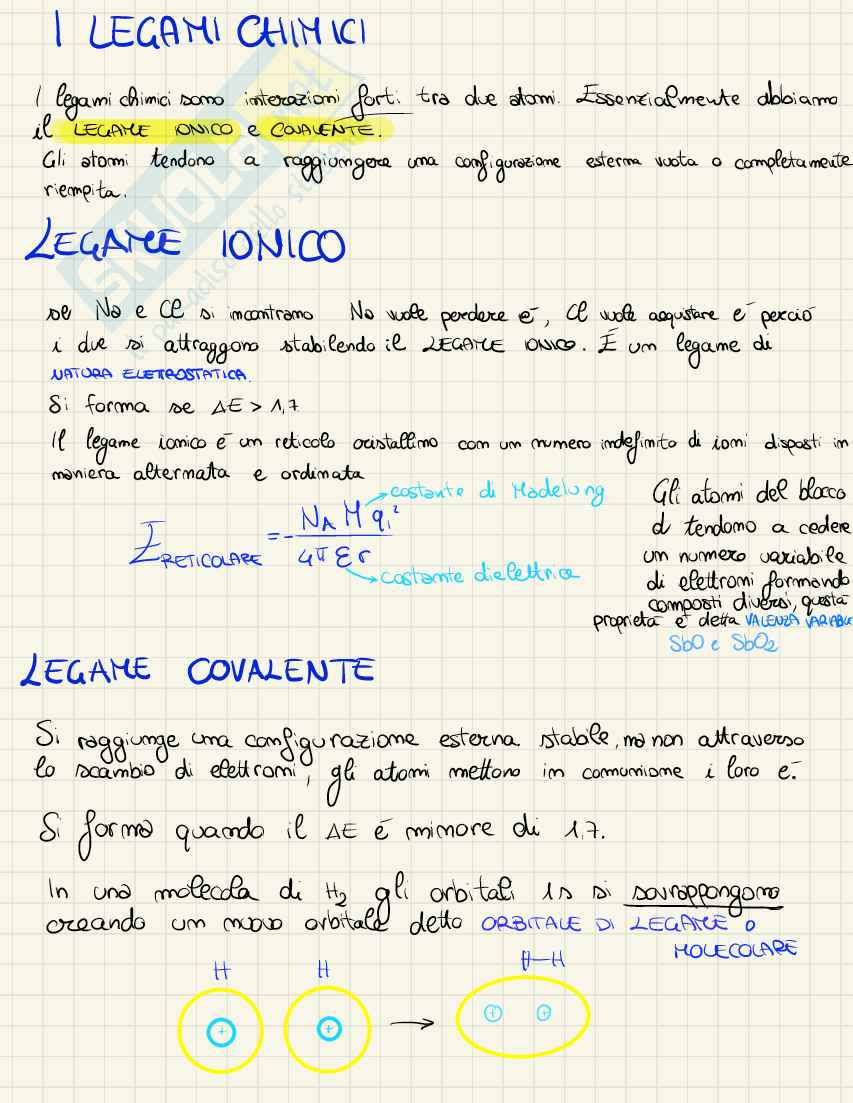 I LEGAMI CHIMICI
I legami chimici sono interazioni forti tra due atomi. Essenzialmente abbiamo
il LEGAME IONICO e COVALENTE.
Gli atomi tendono a raggiungere una configurazione esterna vuota o completamente
riempita.
LEGAME IONICO
se Na e Cl si incontrano Na vuole perdere e⁻, Cl vuole acquistare e⁻ perciò
i due si attraggono stabilendo il LEGAME IONICO. È un legame di
NATURA ELETROSTATICA.
Si forma se ΔE > 1,7
Il legame ionico è un reticolo cristallino con un numero indefinito di ioni disposti in
maniera alternata e ordinata
costante di Madelung
E RETICOLARE = - N_A M q_i² / 4π ε r
costante dielettrica
Gli atomi del blocco
d tendono a cedere
un numero variabile
di elettroni formando
composti diversi, questa
proprietà è detta VALENZA VARIABILE
SbO e SbO2
LEGAME COVALENTE
Si raggiunge una configurazione esterna stabile, ma non attraverso
lo scambio di elettroni, gli atomi mettono in comunione i loro e⁻.
Si forma quando il ΔE è minore di 1,7.
In una molecola di H₂ gli orbitali 1s si sovrappongono
creando un nuovo orbitale detto ORBITALE DI LEGAME o
MOLECOLARE
H H H-H
+ + → + +